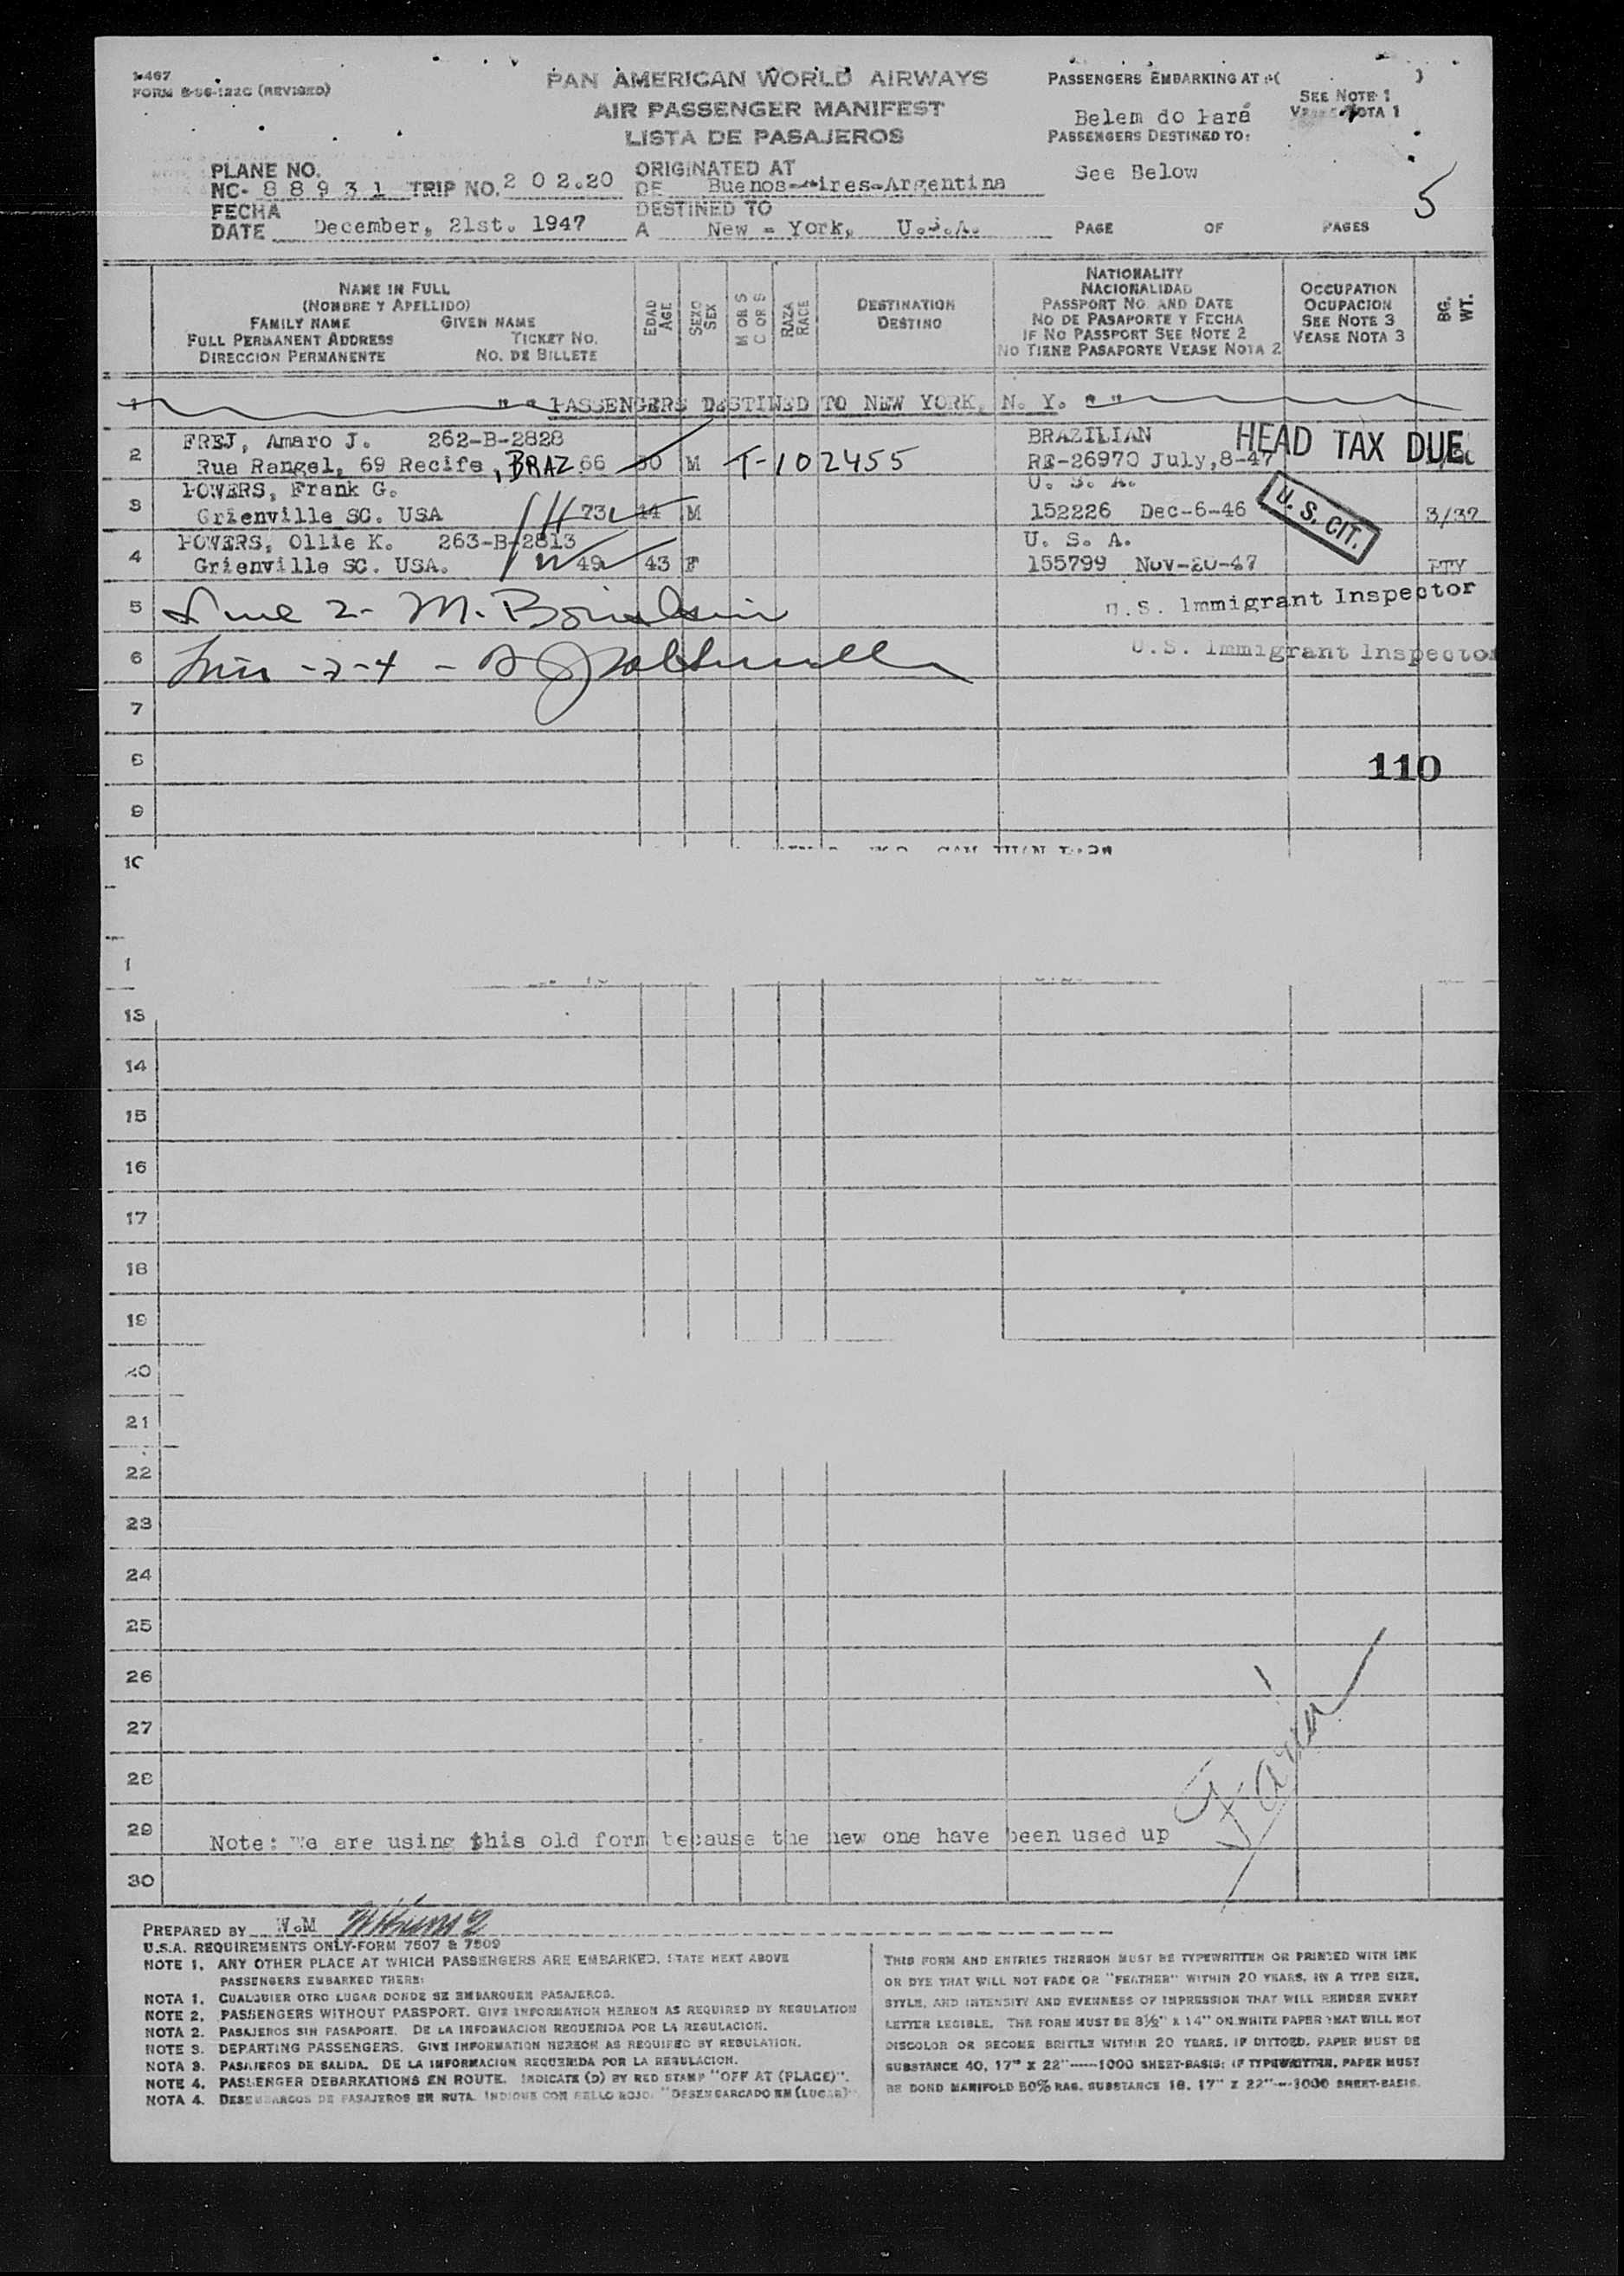 1-467
FORM B-96-122C (REVISED)
PAN AMERICAN WORLD AIRWAYS
AIR PASSENGER MANIFEST
LISTA DE PASAJEROS
PASSENGERS EMBARKING AT:-( )
SEE NOTE 1
NOTA 1
Belem do Pará
PASSENGERS DESTINED TO:
See Below
5
PLANE NO.
NC- 88931 TRIP NO. 202.20
ORIGINATED AT
DE Buenos-Aires-Argentina
FECHA
DATE December, 21st. 1947
DESTINED TO
A New - York, U.S.A.
PAGE OF PAGES
NAME IN FULL
(NOMBRE Y APELLIDO)
FAMILY NAME GIVEN NAME
FULL PERMANENT ADDRESS TICKET NO.
DIRECCION PERMANENTE NO. DE BILLETE
EDAD
AGE
SEXO
SEX
M OR S
C OR S
RAZA
RACE
DESTINATION
DESTINO
NATIONALITY
NACIONALIDAD
PASSPORT NO. AND DATE
NO DE PASAPORTE Y FECHA
IF NO PASSPORT SEE NOTE 2
NO TIENE PASAPORTE VEASE NOTA 2
OCCUPATION
OCUPACION
SEE NOTE 3
VEASE NOTA 3
BG.
WT.
1 " " PASSENGERS DESTINED TO NEW YORK, N. Y. " "
2 FREJ, Amaro J. 262-B-2828 BRAZILIAN HEAD TAX DUE
Rua Rangel, 69 Recife, BRAZ 66 30 M T-102455 RE-26970 July,8-47
3 POWERS, Frank G. U. S. A.
Grienville SC. USA 73 44 M 152226 Dec-6-46 U. S. CIT. 3/37
4 POWERS, Ollie K. 263-B-2813 U. S. A.
Grienville SC. USA. 49 43 F 155799 Nov-20-47 PTY
5 Line 2- M. U.S. Immigrant Inspector
6 -2-4 - U.S. Immigrant Inspector
7
8 110
9
10
1
13
14
15
16
17
18
19
20
21
22
23
24
25
26
27
28
29 Note: We are using this old form because the new one have been used up
30
PREPARED BY W.M
U.S.A. REQUIREMENTS ONLY-FORM 7507 & 7509
NOTE 1. ANY OTHER PLACE AT WHICH PASSENGERS ARE EMBARKED. STATE NEXT ABOVE
PASSENGERS EMBARKED THERE:
NOTA 1. CUALQUIER OTRO LUGAR DONDE SE EMBARQUEN PASAJEROS.
NOTE 2. PASSENGERS WITHOUT PASSPORT. GIVE INFORMATION HEREON AS REQUIRED BY REGULATION
NOTA 2. PASAJEROS SIN PASAPORTE. DE LA INFORMACION REQUERIDA POR LA REGULACION.
NOTE 3. DEPARTING PASSENGERS. GIVE INFORMATION HEREON AS REQUIRED BY REGULATION.
NOTA 3. PASAJEROS DE SALIDA. DE LA INFORMACION REQUERIDA POR LA REGULACION.
NOTE 4. PASSENGER DEBARKATIONS EN ROUTE. INDICATE (D) BY RED STAMP "OFF AT (PLACE)".
NOTA 4. DESEMBARCOS DE PASAJEROS EN RUTA. INDIQUE CON SELLO ROJO. "DESEMBARCADO EN (LUGAR)"
THIS FORM AND ENTRIES THEREON MUST BE TYPEWRITTEN OR PRINTED WITH INK
OR DYE THAT WILL NOT FADE OR "FEATHER" WITHIN 20 YEARS, IN A TYPE SIZE,
STYLE, AND INTENSITY AND EVENNESS OF IMPRESSION THAT WILL RENDER EVERY
LETTER LEGIBLE. THE FORM MUST BE 8½" X 14" ON WHITE PAPER THAT WILL NOT
DISCOLOR OR BECOME BRITTLE WITHIN 20 YEARS. IF DITTOED, PAPER MUST BE
SUBSTANCE 40, 17" X 22"----1000 SHEET-BASIS; IF TYPEWRITTEN, PAPER MUST
BE BOND MANIFOLD 50% RAG, SUBSTANCE 16, 17" X 22"---1000 SHEET-BASIS.